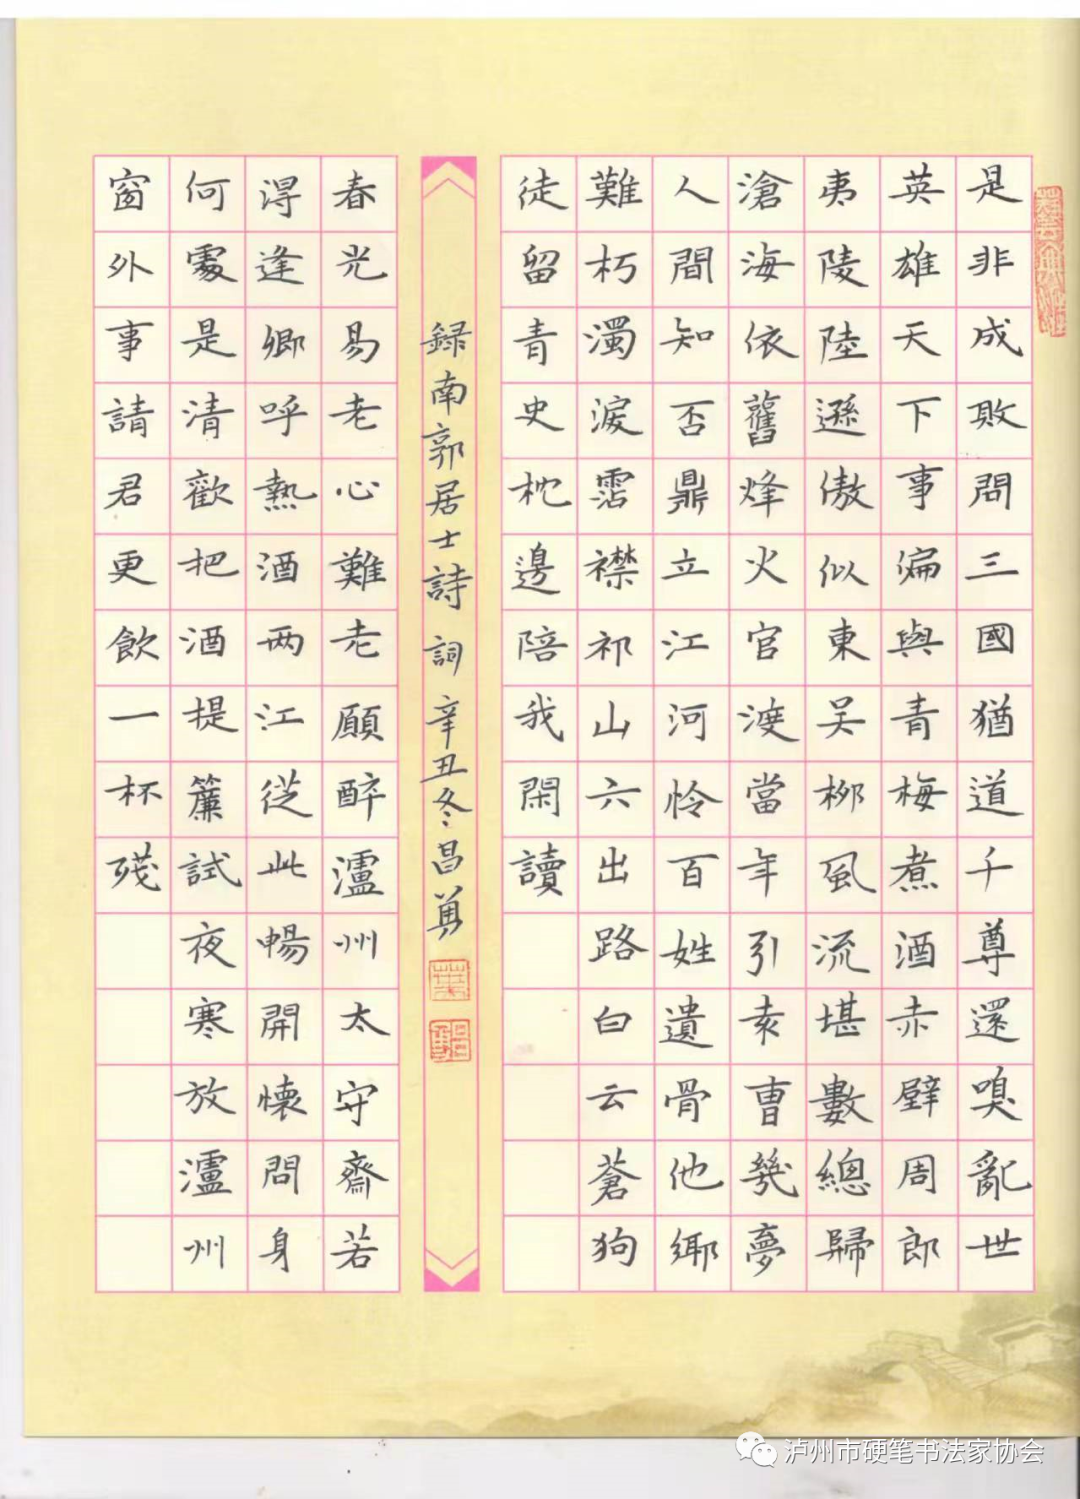 是非成敗問三國猶道千尊還嗅亂世
英雄天下事偏與青梅煮酒赤壁周郎
夷陵陸遜傲似東吴柳風流堪數總歸
滄海依舊烽火官渡當年引袁曹幾夢
人間知否鼎立江河怜百姓遺骨他鄉
難朽濁淚霑襟祁山六出路白云蒼狗
徒留青史枕邊陪我閑讀
録南郭居士詩詞辛丑冬昌
春光易老心難老願醉瀘州太守齋若
得逢卿呼熱酒两江從此暢開懷問身
何處是清歡把酒提簾試夜寒放瀘州
窗外事請君更飲一杯殘
泸州市硬笔书法家协会